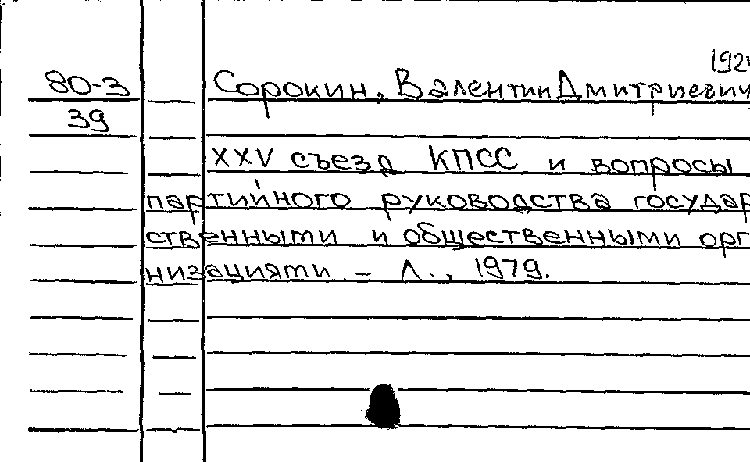 192
80-3 Сорокин, Валентин Дмитриевич
39
XXV съезд КПСС и вопросы
партийного руководства государ
ственными и общественными орг
низациями - Л., 1979.